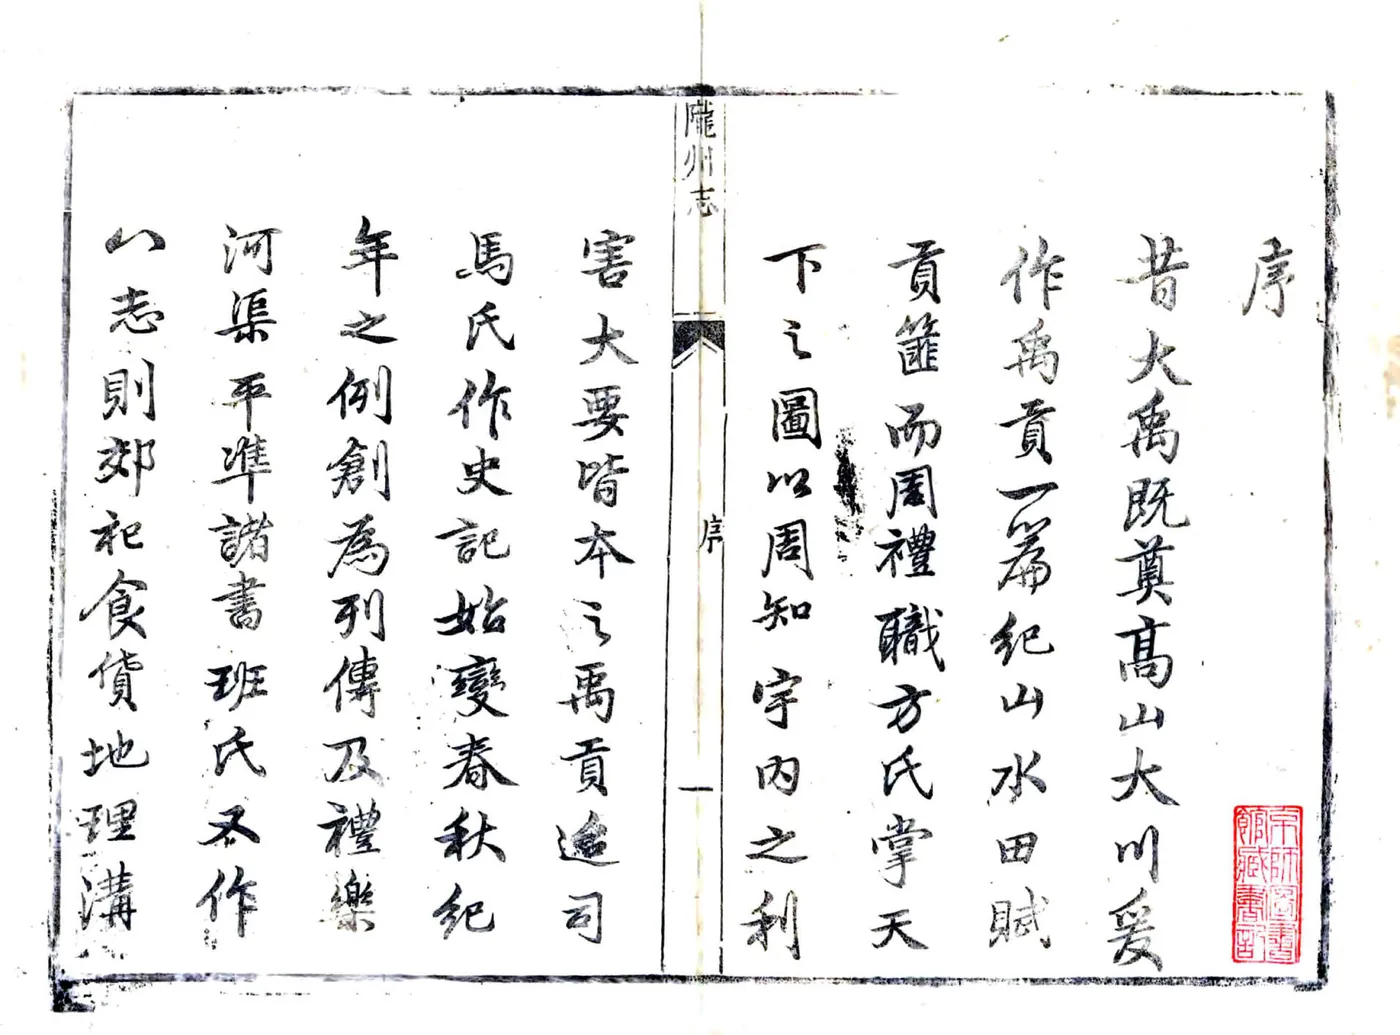 序
昔大禹既奠高山大川爰
作禹貢一篇紀山水田賦
貢篚而周禮職方氏掌天
下之圖以周知宇內之利
隴州志
序
一
害大要皆本之禹貢迨司
馬氏作史記始變春秋紀
年之例創為列傳及禮樂
河渠平準諸書班氏又作
八志則郊祀食貨地理溝
京師圖書
館藏書記